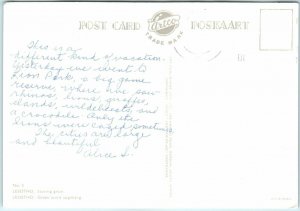 POST CARD Artco POSKAART
TRADE MARK
This is a
different kind of vacation.
Yesterday we went to
Lion Park, a big game
reserve, where we saw
rhinos, lions, giraffe,
elands, wildebeasts, and
a crocodile. Only the
lions were caged sometimes.
The cities are large
and beautiful
Alice S.
No. 5
LESOTHO
LESOTHO